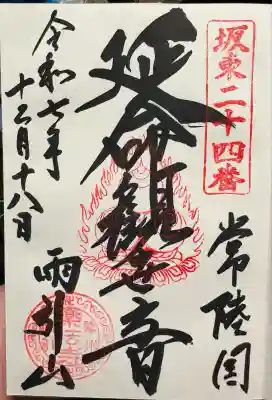 坂東二十四番
常陸国
延命観世音
雨引山
令和七年
十二月十八日